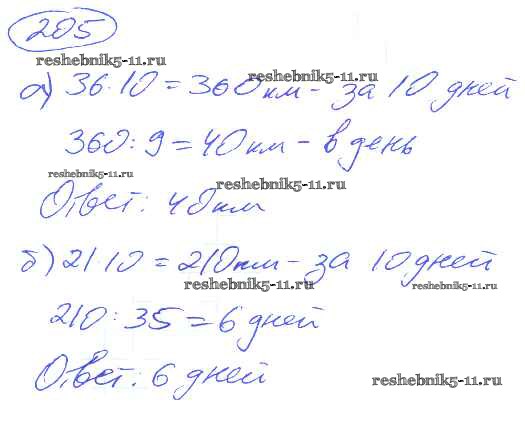 205
reshebnik5-11.ru
reshebnik5-11.ru
а) 36·10=360км- за 10 дней
360:9=40км-в день
reshebnik5-11.ru
reshebnik5-11.ru
Ответ: 40км
б) 21·10=210км-за 10 дней
reshebnik5-11.ru
reshebnik5-11.ru
210:35=6 дней
Ответ: 6 дней
reshebnik5-11.ru